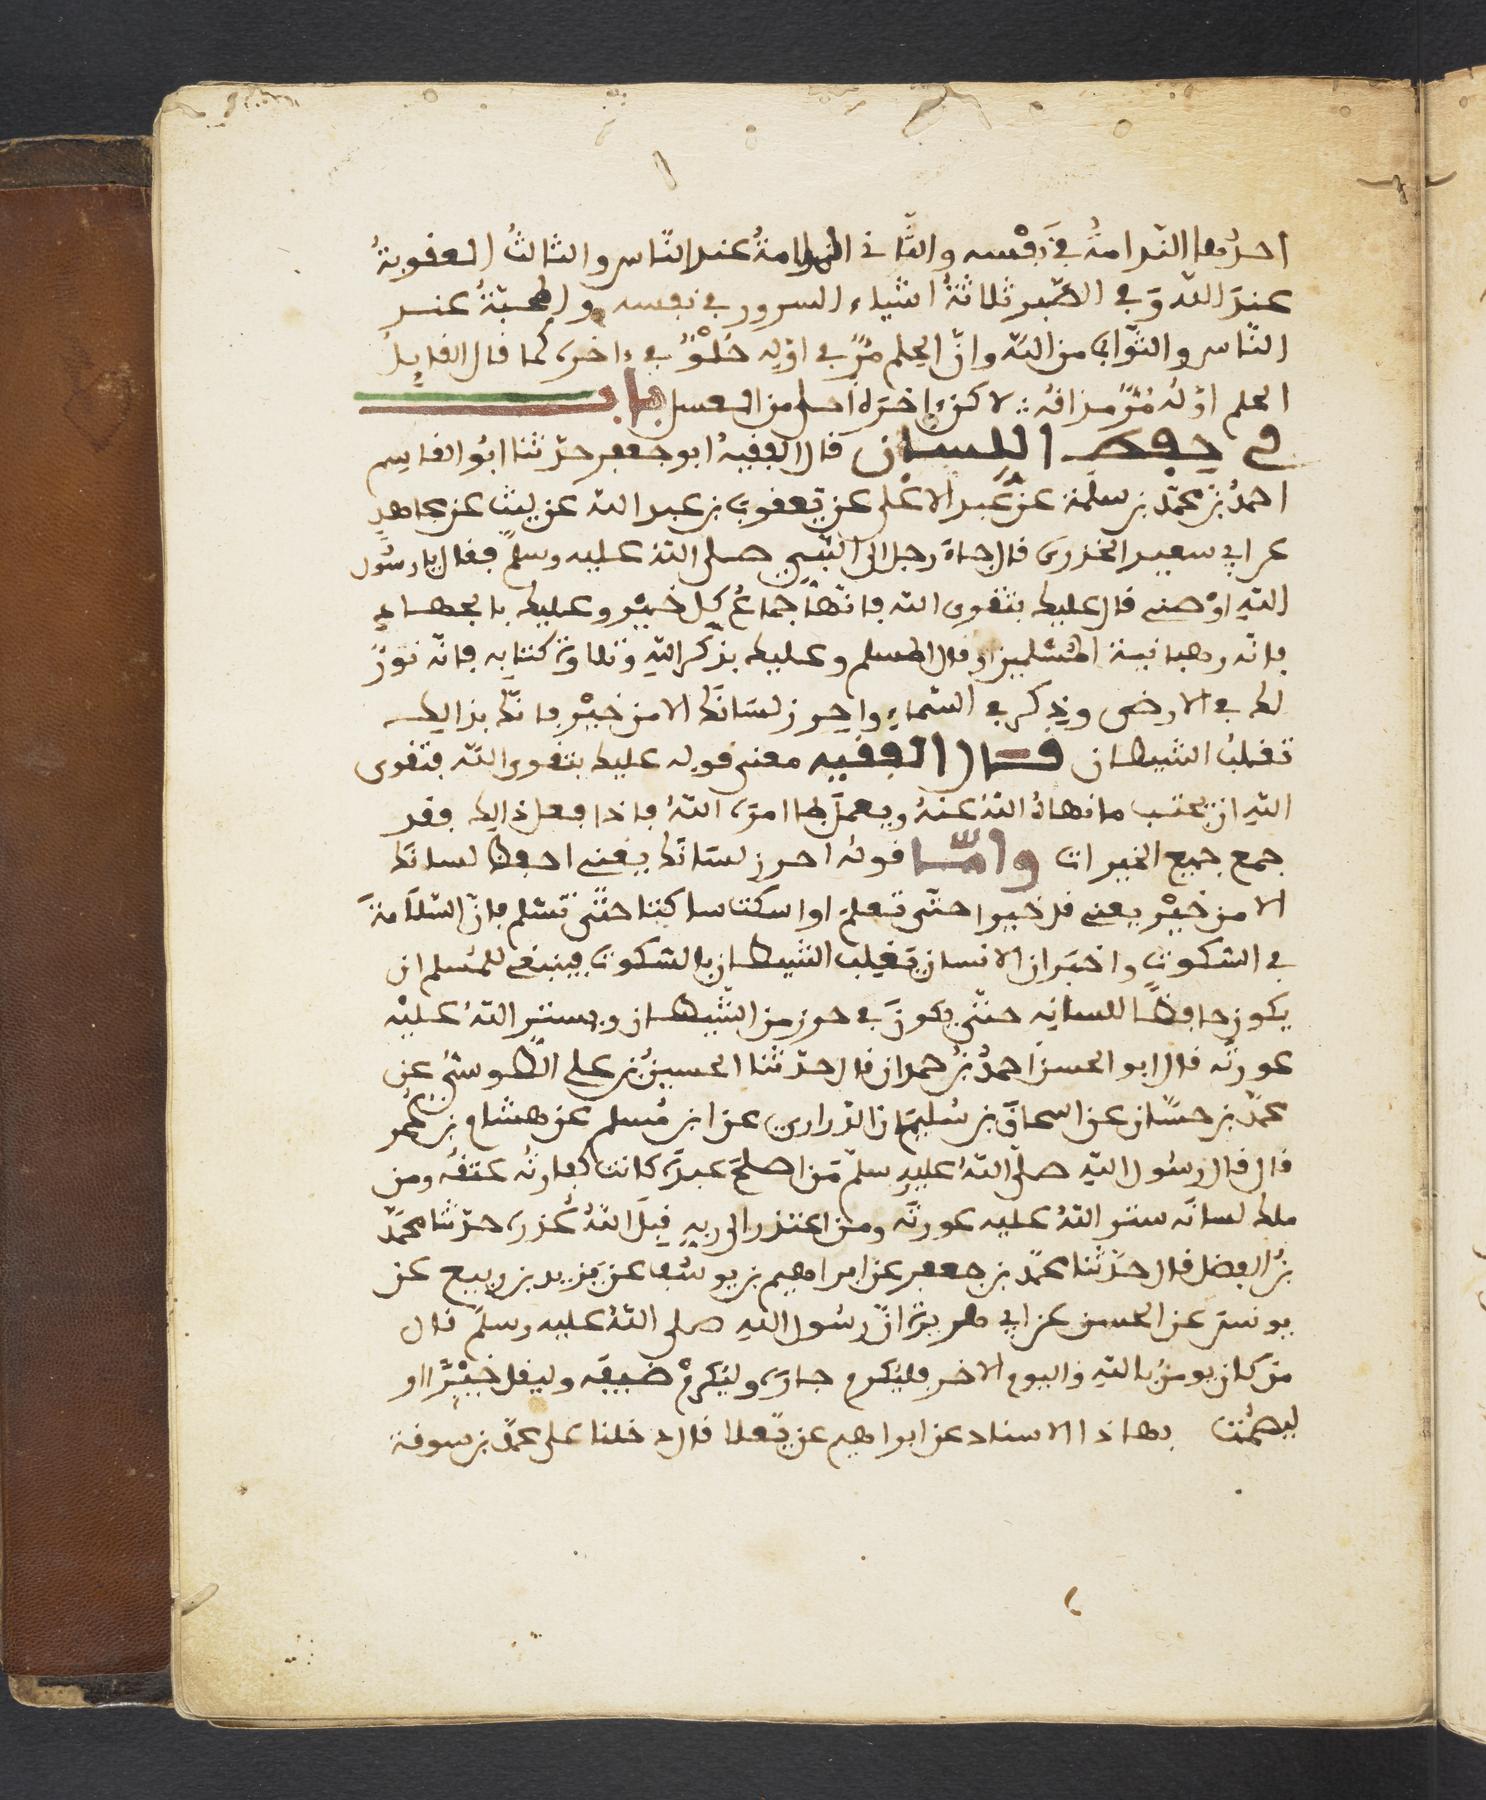 احدها الندامةُ في نفْسه والثّاني الملامةُ عند النّاس والثالثُ العقوبةُ
عندَ اللّه وَفي الصّبر ثلاثةُ اشياء السرور في نفسه والمحبّةُ عند
النّاس والثّواب من اللّه وانّ الحلم مُرٌّ في اوّله حُلْوٌ في ءاخره كما قال القايلُ
الحلم اوّله مُرٌّ مذاقهُ ∴ لاكن ءاخرَه احلى من العسل باب
في حفظ اللسان قال الفقيهُ ابو جعفر حدّثنا ابُو القاسم
احمدُ بنُ محمّد بن سلمة عن عبد الاعْلى عن يَعقوب بن عبد اللّه عن ليث عن مجاهدٍ
عن ابي سعيد الخدرى قال جاءَ رجل الى النّبيِ صلى اللّهُ عليه وسلمَ فقال يا رسُول
اللّهِ اوْصنى قال عليك بتقوى اللّه فانّهَا جماعُ كلِ خيْر وعليك بالجهادِ
فانّه رهبانية المُسْلمين او قال المسلم وعليك بذكر اللّهِ وتلاوة كتابِه فانّه نورٌ
لك في الارض وذِكر في السّماءِ واحرز لسَانَك الا من خيْر فانّك بذالك
تغلبُ الشيطان قــال الفقيه معنى قوله عليك بتقوى اللّه فتقوى
اللّهِ ان يجتنب ما نهاهُ اللّهُ عنهُ ويعملَ بما امرَه اللّهُ فاذا فعل ذالك فقد
جمع جميع الخيرات وامّــا قولهُ احرز لسَانَك يعنى احفظ لسانَك
الا من خيْر يعنى قل خيرا حتّى تعلمَ او اسكت ساكتا حتّى تسْلم فانّ السّلَامةَ
في السّكوت واخبَر ان الانسان يَغلِب الشيطان بالسّكوت فينبغى للمُسلم ان
يكون حافظًا للسانِه حتّى يكونَ في حرزٍ من الشّيطان ويستر اللّهُ عليْه
عورتَه قال ابو الحسن احمدُ بنُ حمدان قال حدّثنا الحسينُ بنُ على الطّوسىُّ عن
محمّد بن حسّان عن اسحاقَ بن سُليمَان الدّرارى عن ابن مُسلم عن هشام بن عُمر
قال قال رسُول اللّهِ صلّى اللّهُ عليهِ سلّم مَن اصلحَ عبدَه كانت كفارتُه عتقُه ومن
ملك لسانَه ستر اللّهُ عليه عورتَه ومن اعتذر الى ربِه قبلَ اللّهُ عُذره حدّثنا محمّد
بنُ الفضل قال حدّثنا محمّد بن جعفر عن ابراهيم بن يوسُف عن يَزيد بن ربيع عن
يونسَ عن الحسن عن ابي هريرة انّ رسُول اللّهِ صلى اللّهُ عليه وسلمَ قال
من كان يومنُ باللّهِ واليوم الاخر فليُكرم جارَه وليُكرمْ ضيفَه وليقل خيْرًا او
ليصمُت بهاذا الاسناد عن ابراهيم عن يَعلا قال دخلنا على محمّد بن سوقة